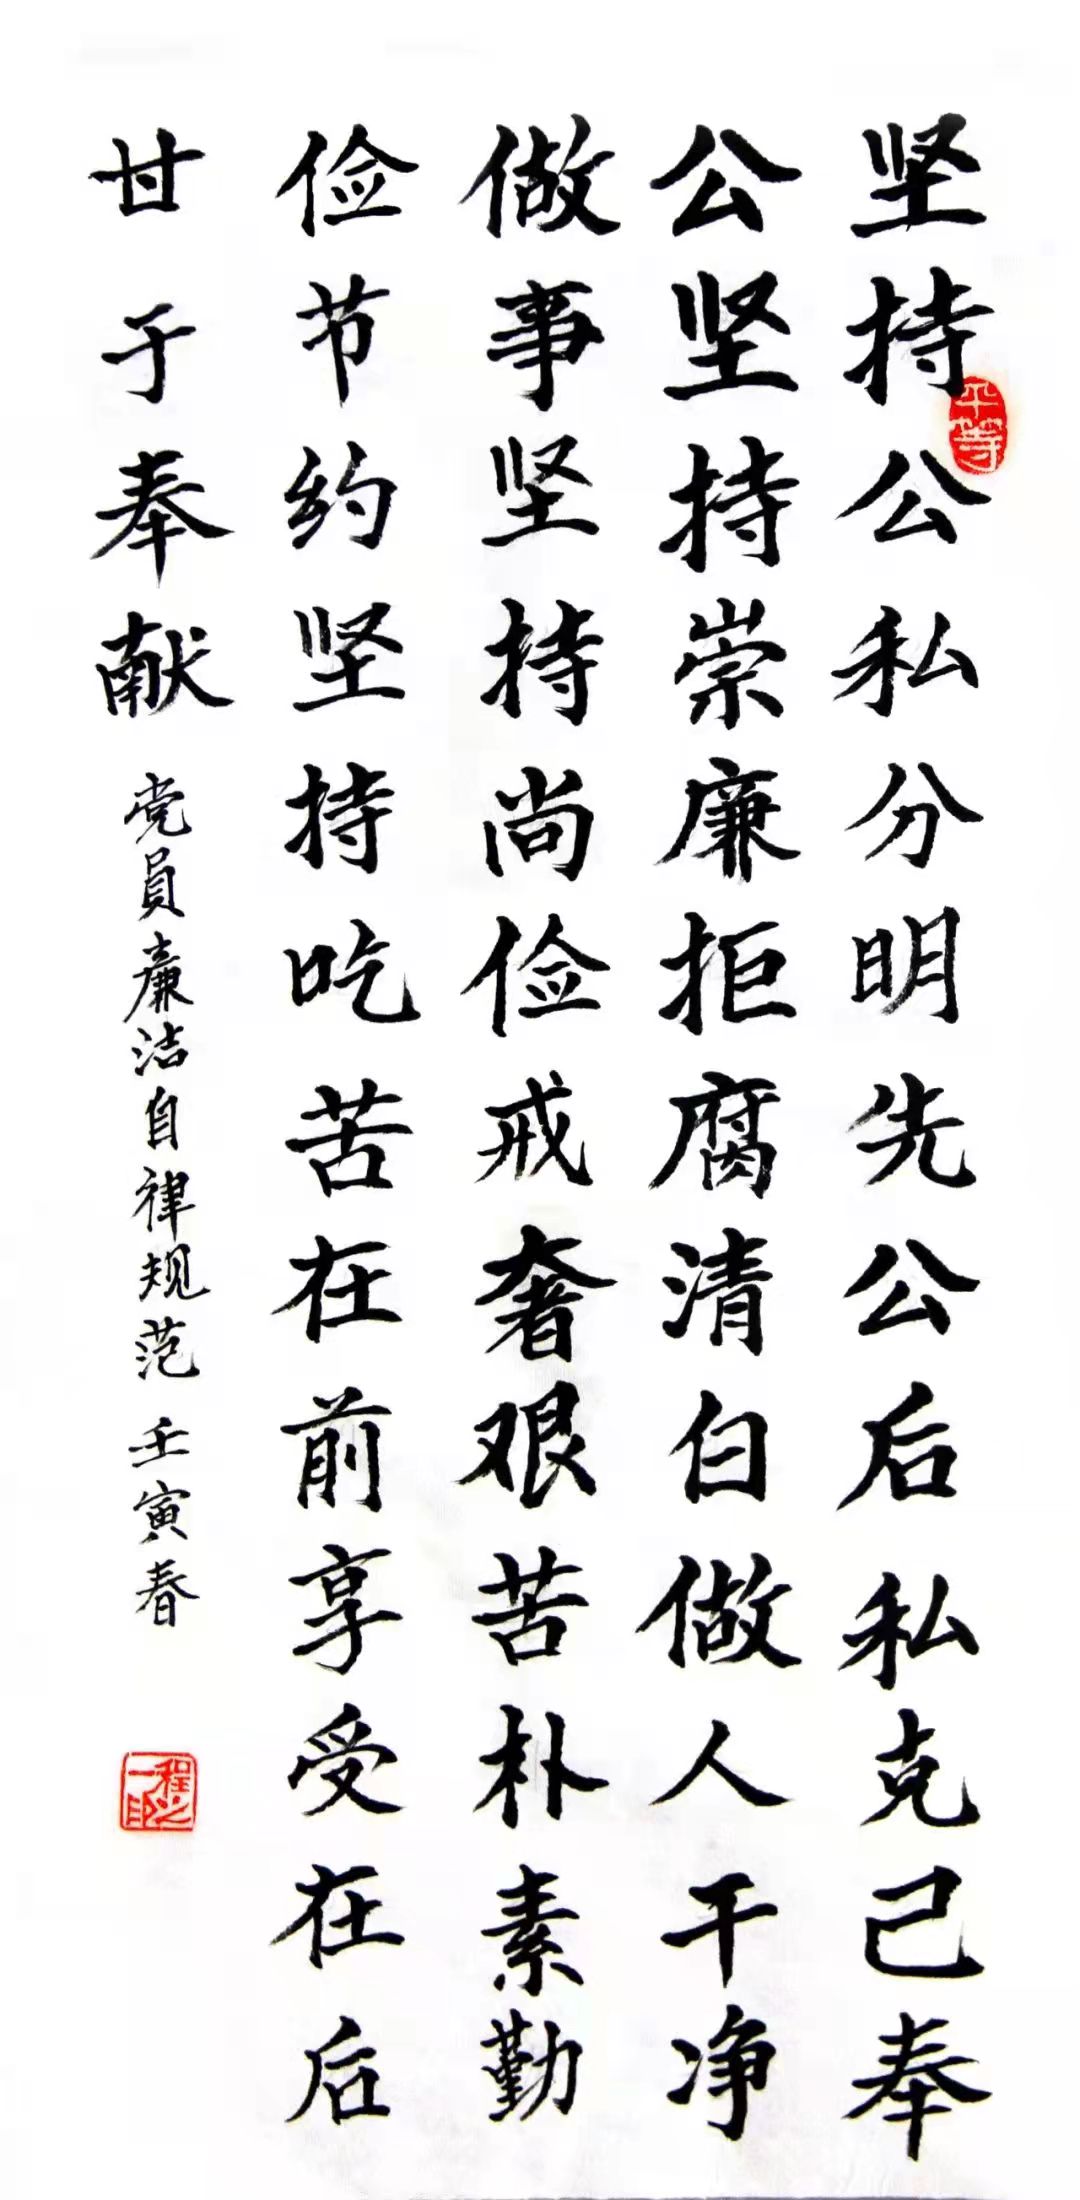 坚持公私分明先公后私克己奉
公坚持崇廉拒腐清白做人干净
做事坚持尚俭戒奢艰苦朴素勤
俭节约坚持吃苦在前享受在后
甘于奉献
党员廉洁自律规范 壬寅春
平等